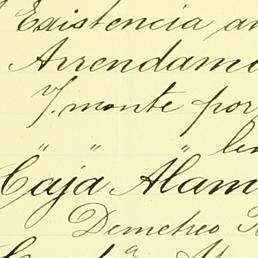 Existencia an
Arrendame
y/. monte por
" " " len
Caja Alam
Demetreo R